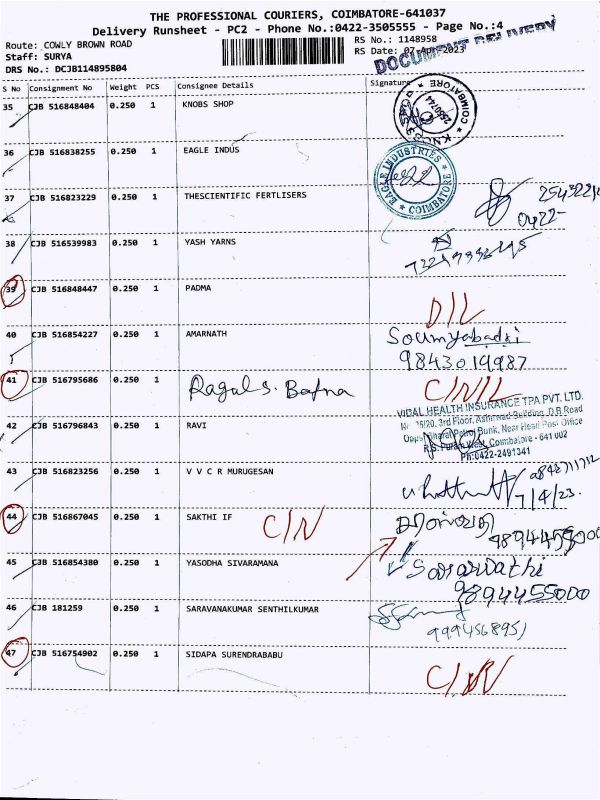 THE PROFESSIONAL COURIERS, COIMBATORE-641037
Delivery Runsheet - PC2 - Phone No.:0422-3505555 - Page No.:4
Route: COWLY BROWN ROAD
Staff: SURYA
DRS No.: DCJB114895804
RS No.: 1148958
RS Date: 07-Apr-2023
DOCUMENT DELIVERY
S No Consignment No Weight PCS Consignee Details Signature
35 CJB 516848404 0.250 1 KNOBS SHOP
COIMBATORE
36 CJB 516838255 0.250 1 EAGLE INDUS
EAGLE INDUSTRIES
COIMBATORE
37 CJB 516823229 0.250 1 THESCIENTIFIC FERTLISERS
0422-
38 CJB 516539983 0.250 1 YASH YARNS
39 CJB 516848447 0.250 1 PADMA
D/L
40 CJB 516854227 0.250 1 AMARNATH Soumyabadri
9843019987
41 CJB 516795686 0.250 1 Ragal S. Bafna
VIDAL HEALTH INSURANCE TPA PVT. LTD.
3rd Floor, Building, D.B Road
Bharat Petrol Bunk, Near Head Post Office
R.S. Puram West, Coimbatore - 641 002
Ph:0422-2491341
42 CJB 516796843 0.250 1 RAVI
43 CJB 516823256 0.250 1 V V C R MURUGESAN
7/4/23.
44 CJB 516867045 0.250 1 SAKTHI IF C/N
45 CJB 516854380 0.250 1 YASODHA SIVARAMANA Saraswathi
9894455000
46 CJB 181259 0.250 1 SARAVANAKUMAR SENTHILKUMAR
9994568951
47 CJB 516754902 0.250 1 SIDAPA SURENDRABABU